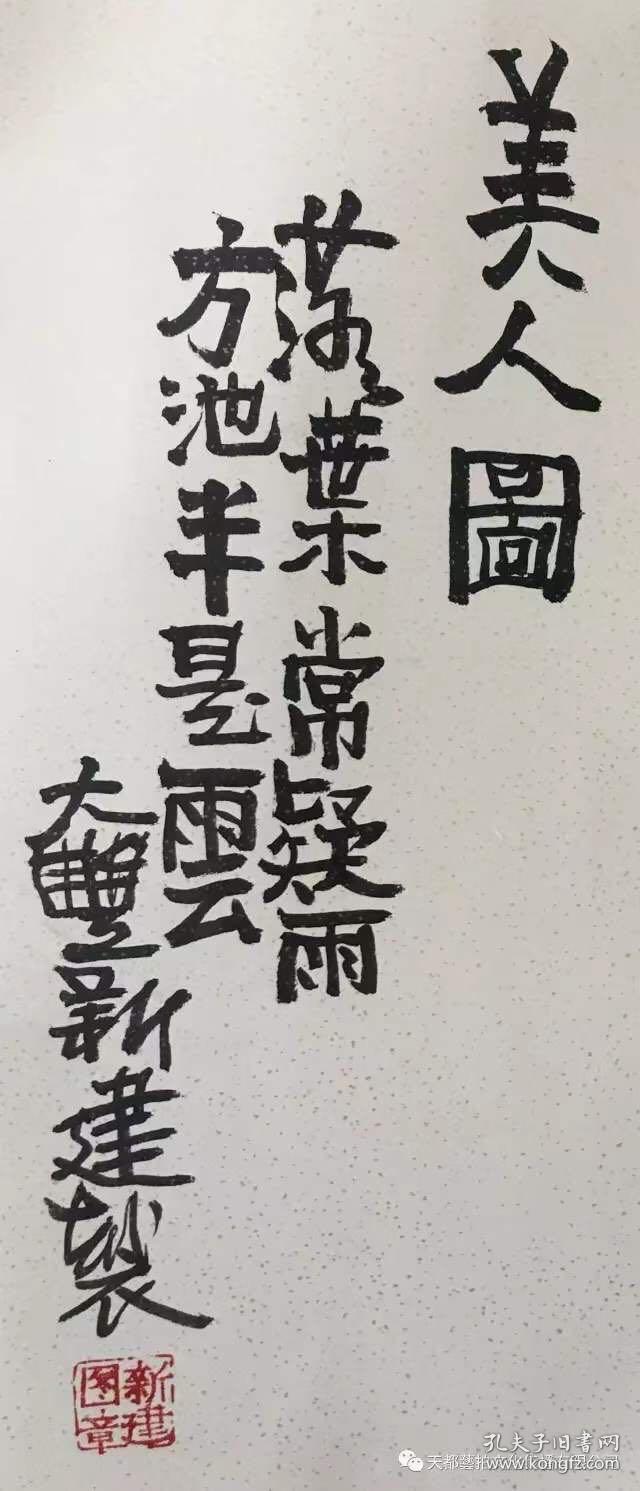 美人圖
落葉常疑雨
方池半是雲
大豐新建製
新建
图章
孔夫子旧书网
www.kongfz.com
天都藝拍
有限公司